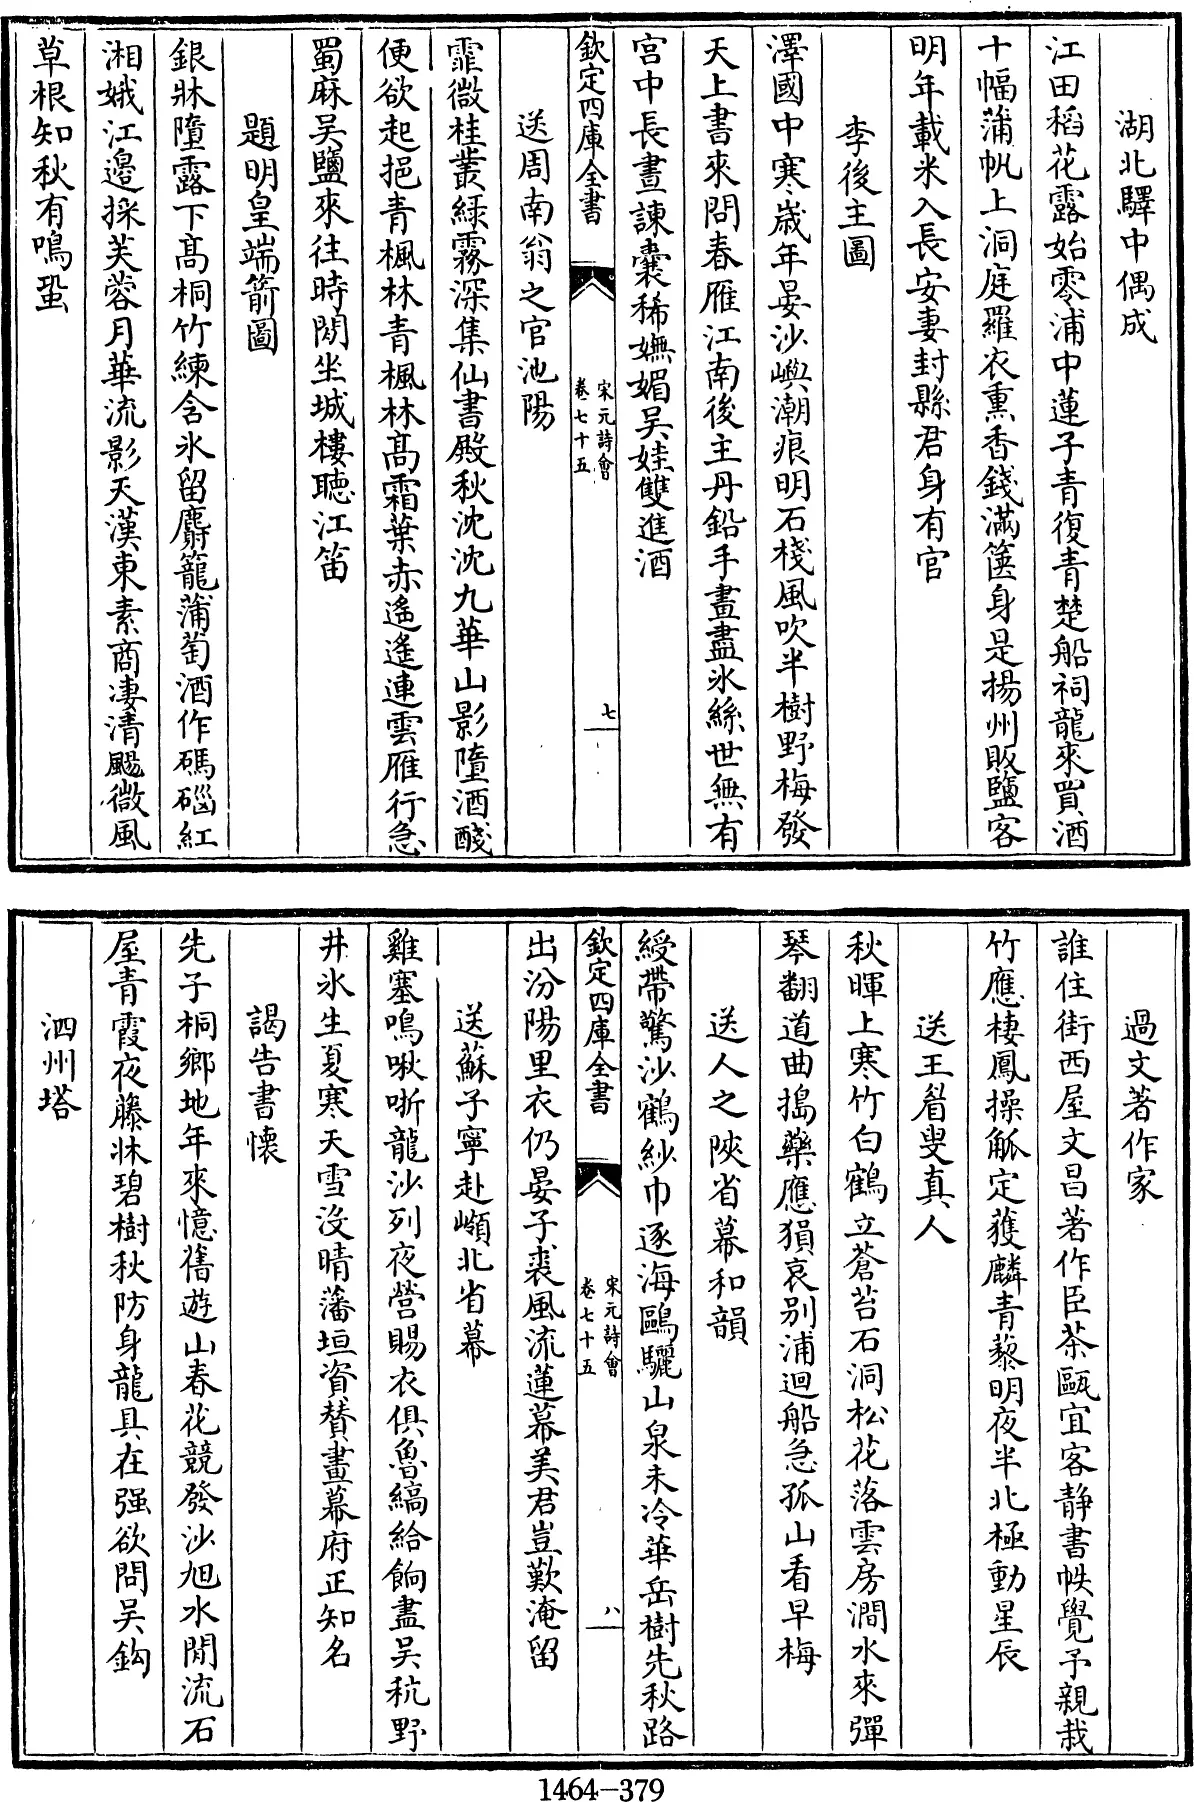 湖北驛中偶成
江田稻花露始零浦中蓮子青復青楚船祠龍來買酒
十幅蒲帆上洞庭羅衣熏香錢滿篋身是揚州販鹽客
明年載米入長安妻封縣君身有官
李後主圖
澤國中寒歳年晏沙嶼潮痕明石棧風吹半樹野梅發
天上書來問春雁江南後主丹鉛手畫盡氷絲世無有
宮中長晝諫囊稀嫵媚吳娃雙進酒
欽定四庫全書
宋元詩會
卷七十五
七
送周南翁之官池陽
霏微桂叢緑霧深集仙書殿秋沈沈九華山影墮酒醆
便欲起挹青楓林青楓林髙霜葉赤遙遙連雲雁行急
蜀麻吳鹽來往時閒坐城樓聽江笛
題明皇端箭圖
銀牀墮露下髙桐竹練含氷留麝籠蒲萄酒作碼碯紅
湘娥江邉採芙蓉月華流影天漢東素商凄清颺微風
草根知秋有鳴蛩
過文著作家
誰住街西屋文昌著作臣茶甌宜客静書帙覺予親栽
竹應棲鳳操觚定獲麟青藜明夜半北極動星辰
送王眉叟真人
秋暉上寒竹白鶴立蒼苔石洞松花落雲房澗水來彈
琴翻道曲搗藥應猿哀别浦迴船急孤山看早梅
送人之陜省幕和韻
綬帶驚沙鶴紗巾逐海鷗驪山泉未冷華岳樹先秋路
欽定四庫全書
宋元詩會
卷七十五
八
出汾陽里衣仍晏子裘風流蓮幕美君豈歎淹留
送蘇子寧赴嶺北省幕
雞塞鳴啾哳龍沙列夜營賜衣俱魯縞給餉盡吳秔野
井氷生夏寒天雪沒晴藩垣資賛畫幕府正知名
謁告書懷
先子桐鄉地年來憶舊遊山春花競發沙旭水閒流石
屋青霞夜藤牀碧樹秋防身龍具在强欲問吳鈎
泗州塔
1464-379